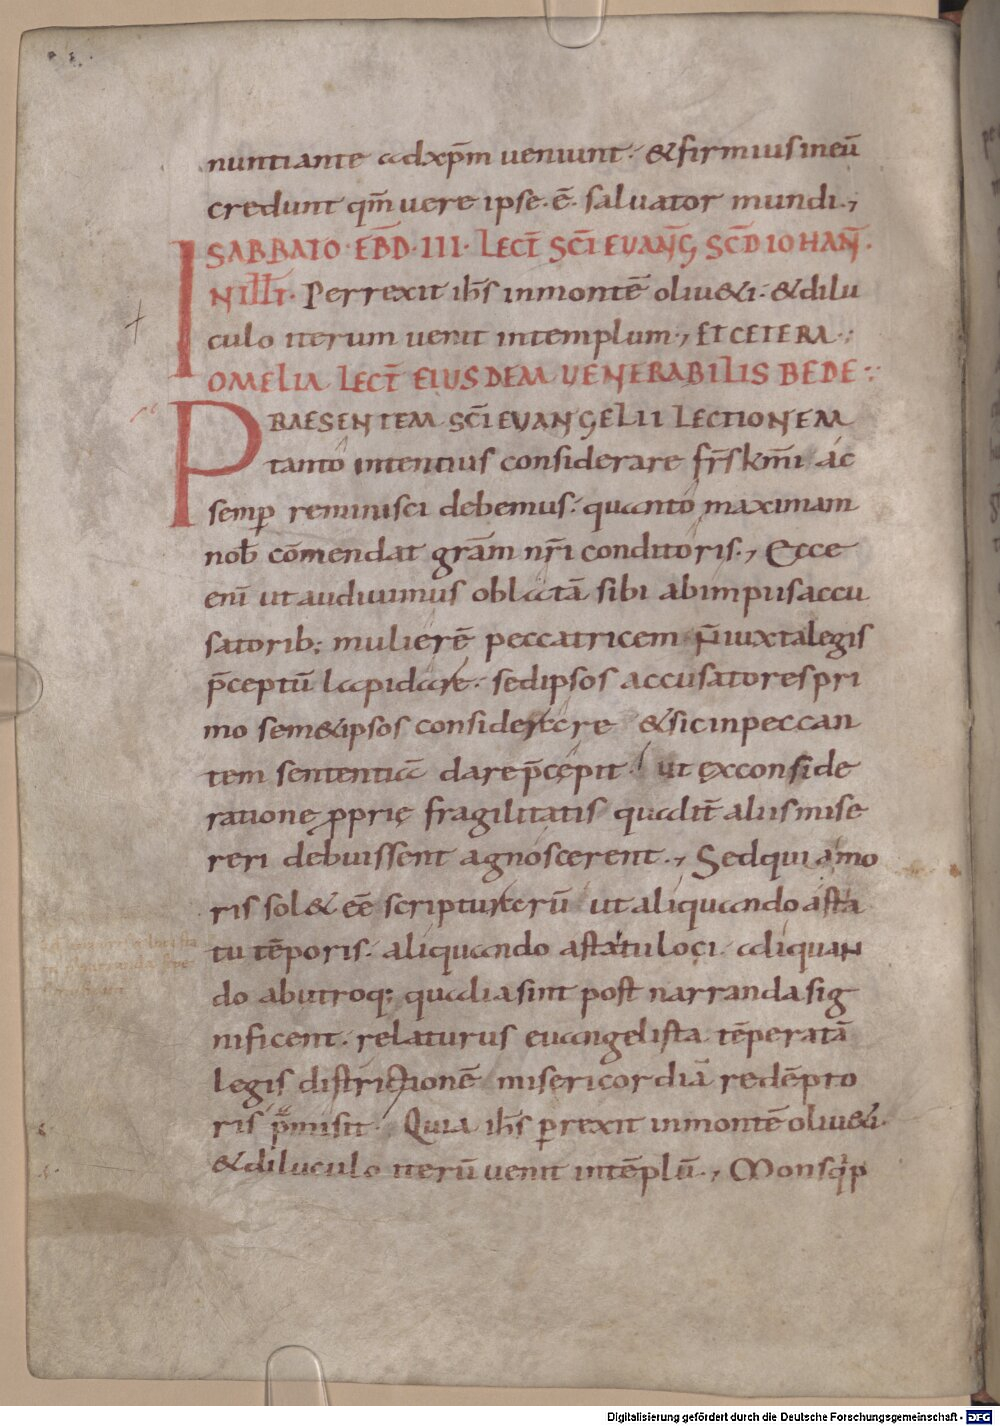 nuntiante adxp̄m ueniunt· &firmiusineū
credunt qm̄ uere ipse·ē· saluator mundi·,
SABBATO·EB̄D·III·LECT̄ SC̄I EVANḠ SC̄D IOHAN̄·
IN ILLT̄· Perrexit ih̄s inmontē oliu&i· &dilu
culo iterum uenit intemplum·, ET CETERA·:
OMELIA LECT̄ EIUSDEM VENERABILIS BEDE·:
PRAESENTEM SC̄I EVANGELII LECTIONEM
tanto intentius considerare fr̄s km̄i ac
semꝑ reminisci debemus· quanto maximam
nob̄ cōmendat grām nr̄i conditoris·, Ecce
enī ut audiuimus oblatā sibi abimpiisaccu
satorib; mulierē peccatricem n̄iuxtalegis
p̄ceptū lapidare· sedipsos accusatorespri
mo sem&ipsos considerare &sicinpeccan
tem sententiā darep̄cepit· ut exconside
ratione ꝓprię fragilitatis qualit̄ aliismise
reri debuissent agnoscerent·, Sedqui amo
ris sol& eē scripturarū utaliquando asta
tu tēporis· aliquando astatuloci· aliquan
do abutroq; qualiasint post narrandasig
nificent· relaturus euangelista tēperatā
legis districtionē misericordiā redēpto
ris p̄misit· Quia ih̄s ꝑrexit inmontē oliu&i·
&diluculo iterū uenit intēplū·, Monsq́ꝑ
Digitalisierung gefördert durch die Deutsche Forschungsgemeinschaft - DFG